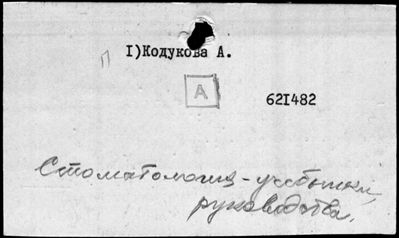 I)Кодукова А.
П
А
62I482
Стоматология - учебники,
руководства.